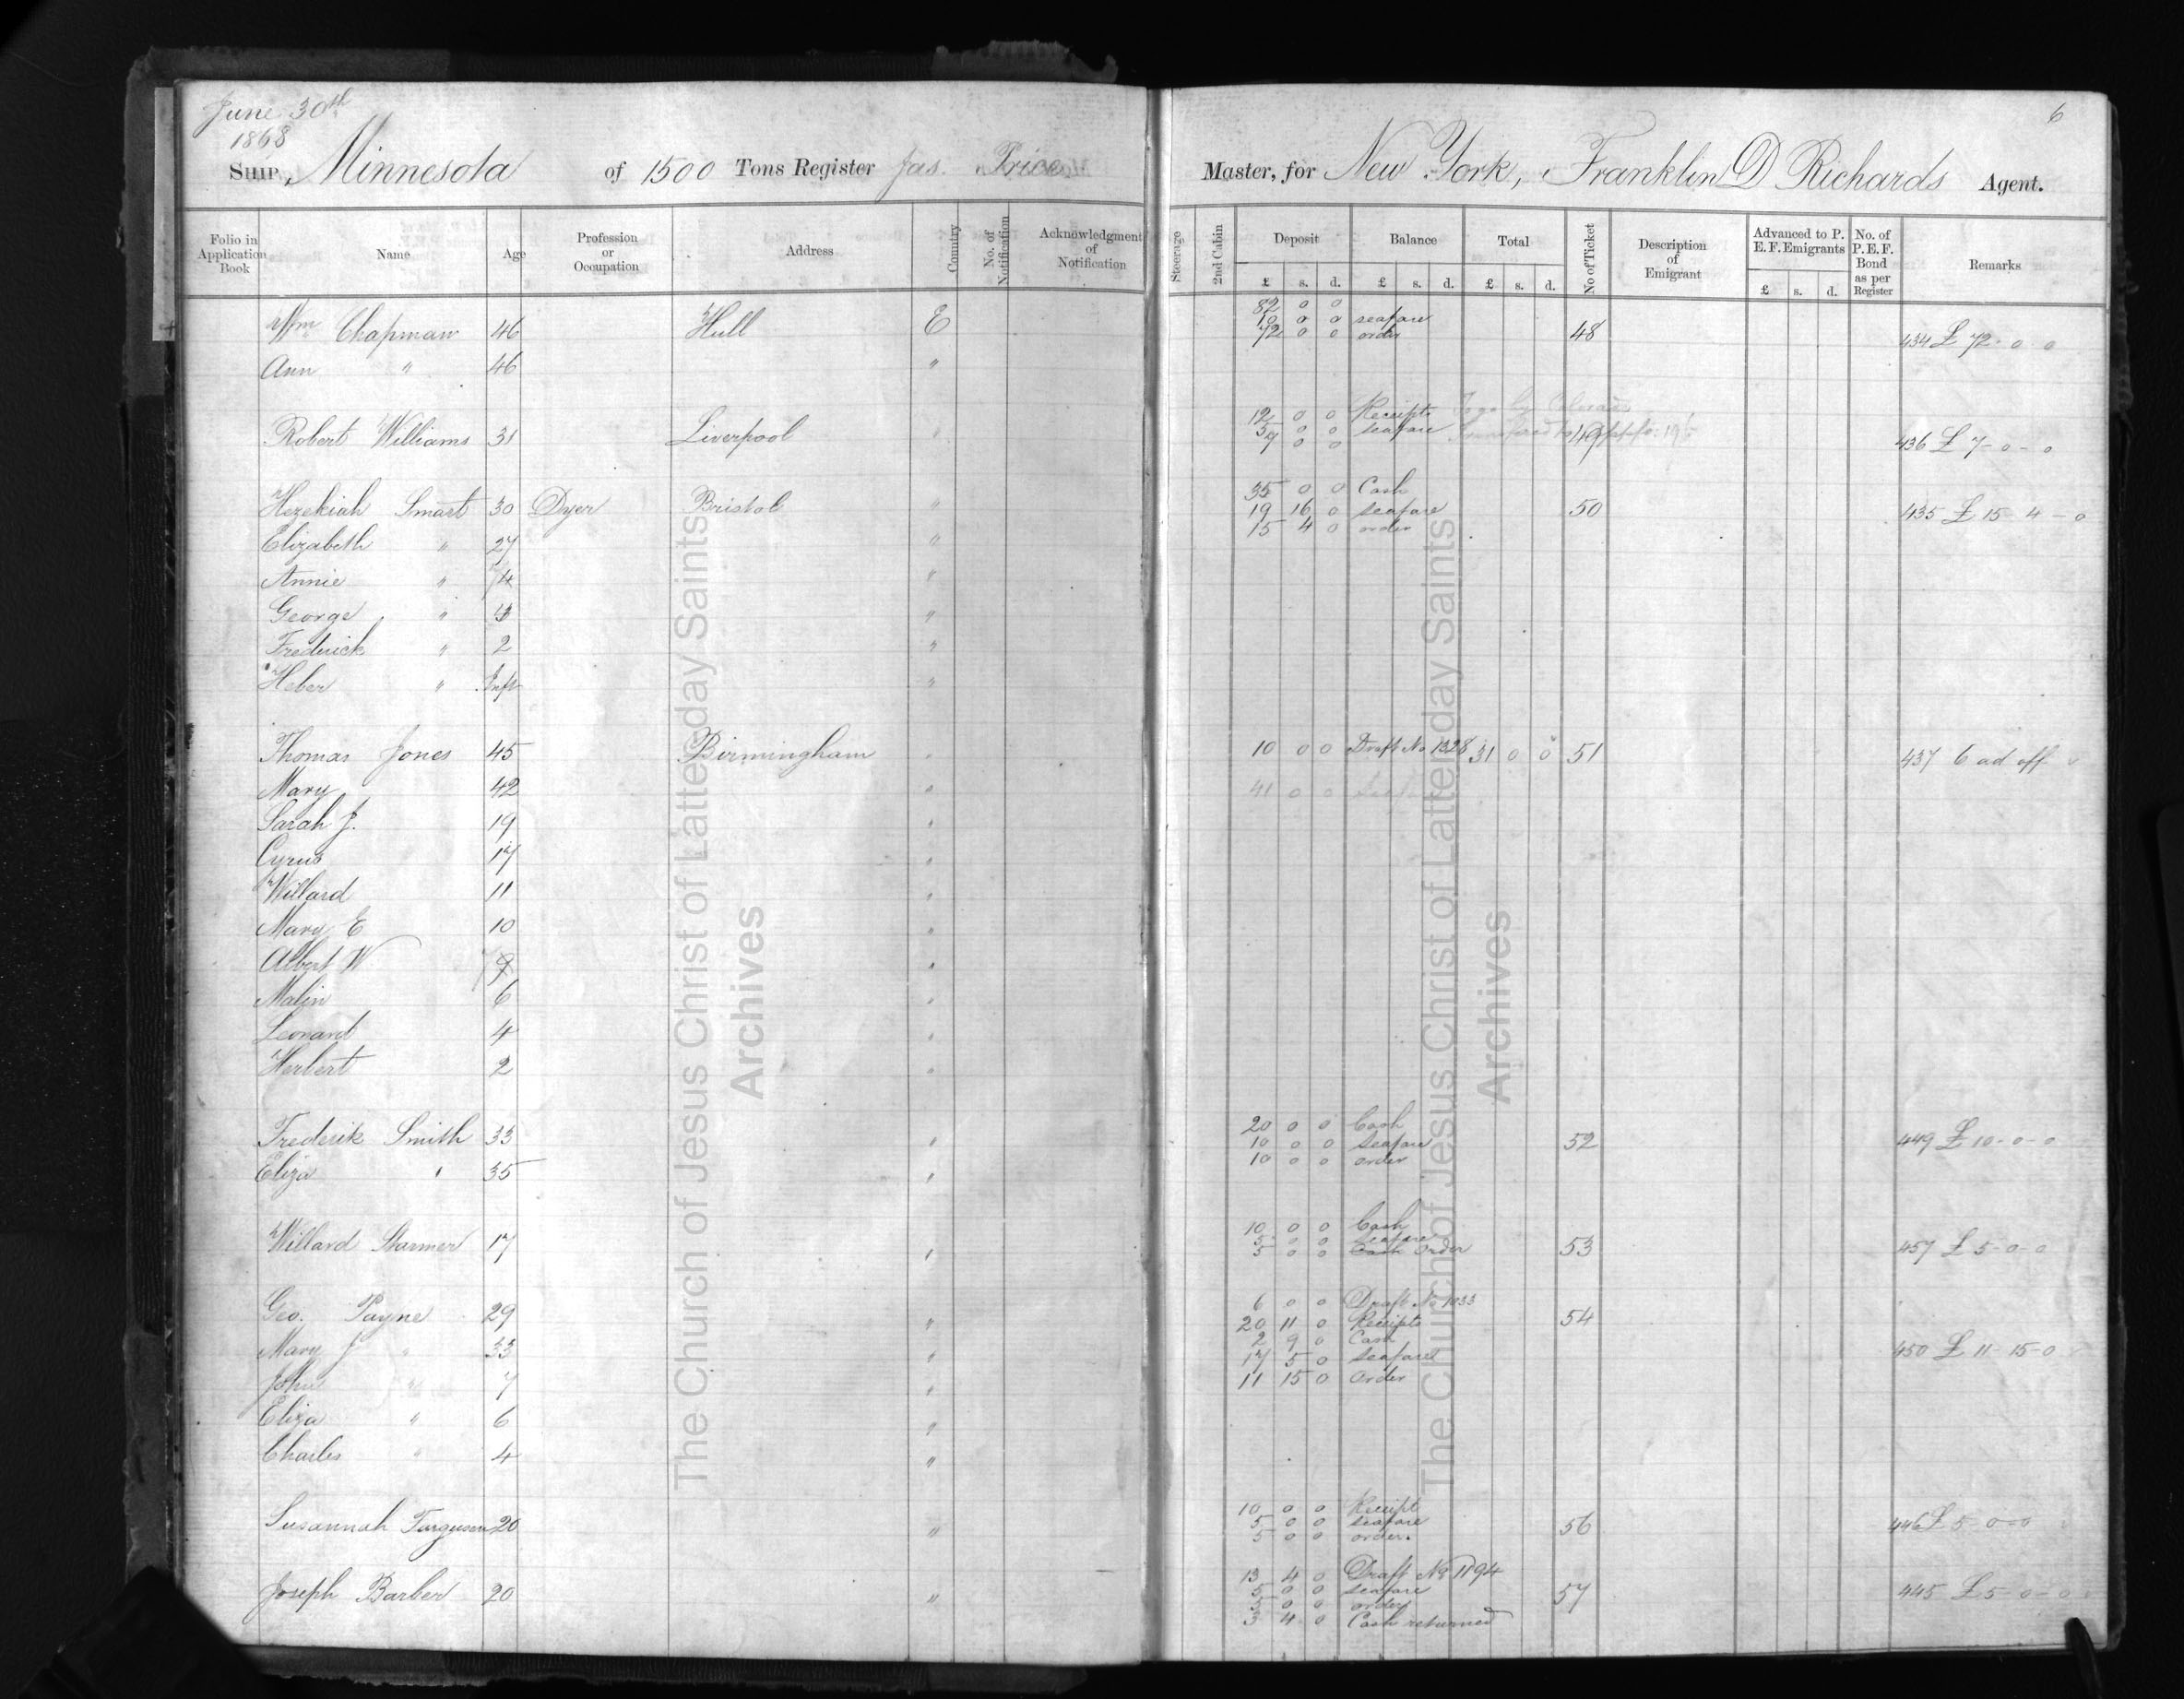 June 30th
1868
6
SHIP, Minnesota of 1500 Tons Register Jas. Price Master, for New York, Franklin D Richards Agent.
Folio in Application Book Name Age Profession or Occupation Address Country No. of Notification Acknowledgment of Notification Steerage 2nd Cabin Deposit Balance Total No of Ticket Description of Emigrant Advanced to P. E. F. Emigrants No. of P.E.F. Bond as per Register Remarks
£ s. d. £ s. d. £ s. d. £ s. d.
82 0 0
Wm Chapman 46 Hull E 10 0 0 seafare 48 434 £ 72-0-0
72 0 0 order
Ann " 46 "
12 0 0 Receipts To go by Colorado
Robert Williams 31 Liverpool " 5 0 0 seafare 49 436 £ 7-0-0
7 0 0
35 0 0 Cash
Hezekiah Smart 30 Dyer Bristol " 19 16 0 seafare 50 435 £ 15 4-0
15 4 0 order
Elizabeth " 27 "
Annie " 4 "
George " "
Frederick " 2 "
Heber " Inft "
Thomas Jones 45 Birmingham " 10 0 0 Draft No 1328 31 0 0 51 437 6 ad off
Mary 42 " 41 0 0
Sarah J. 19 "
Cyrus 17 "
Willard 11 "
Mary E 10 "
Albert W "
Malin 6 "
Leonard 4 "
Herbert 2 "
20 0 0 Cash
Frederik Smith 33 " 10 0 0 seafare 52 449 £ 10-0-0
10 0 0 order
Eliza " 35 "
10 0 0 Cash
Willard Starmer 17 " 5 0 0 seafare 53 457 £ 5-0-0
5 0 0 Cash Order
6 0 0 Draft No 1033
Geo. Payne 29 " 20 11 0 Receipts 54
2 9 0 Cash
Mary J " 33 " 17 5 0 seafare 450 £ 11-15-0
John " 7 " 11 15 0 Order
Eliza " 6 "
Charles " 4 "
10 0 0 Receipt
Susannah Farguson 20 " 5 0 0 seafare 56 446 £ 5-0-0
5 0 0 order.
13 4 0 Draft No 1194
Joseph Barber 20 " 5 0 0 seafare 57 445 £ 5-0-0
5 0 0 order
3 4 0 Cash returned
The Church of Jesus Christ of Latter-day Saints
Archives
The Church of Jesus Christ of Latter-day Saints
Archives